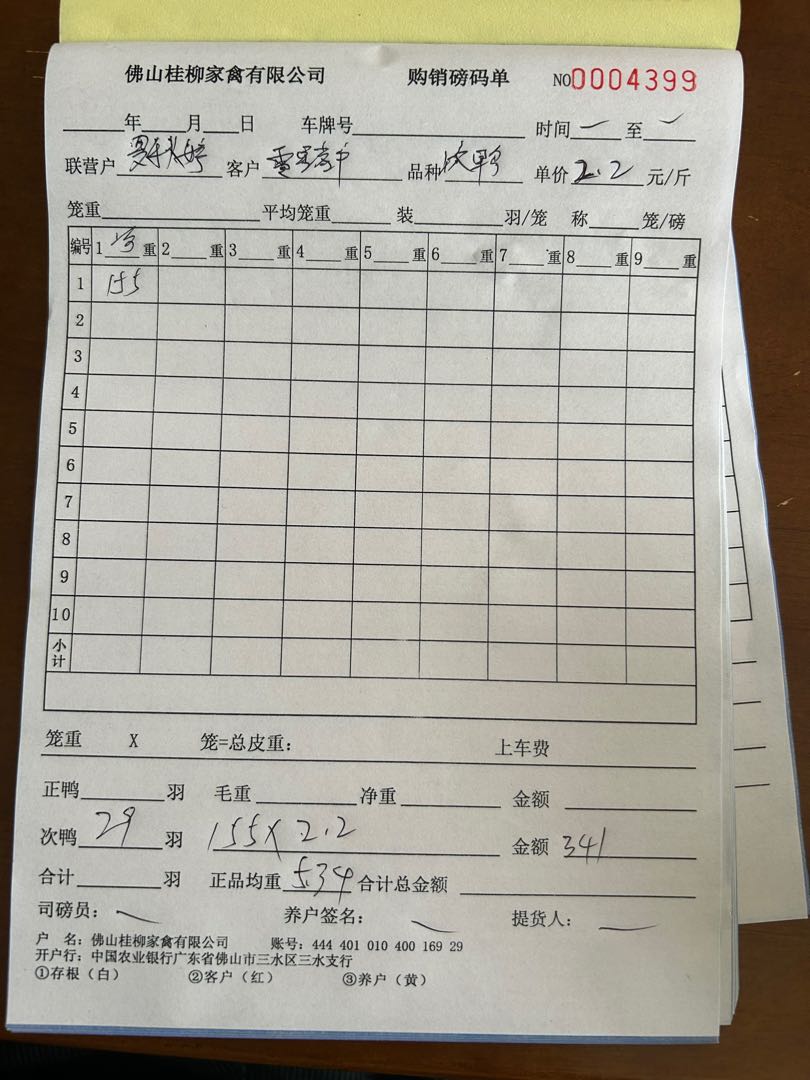 佛山桂柳家禽有限公司 购销磅码单 NO0004399
____年____月____日 车牌号________ 时间____至____
联营户____ 客户____ 品种次鸭 单价2.2元/斤
笼重________平均笼重____装____羽/笼 称____笼/磅
编号 1____重 2____重 3____重 4____重 5____重 6____重 7____重 8____重 9____重
1 155
2
3
4
5
6
7
8
9
10
小计
笼重 X 笼=总皮重： 上车费
正鸭____羽 毛重____净重____ 金额____
次鸭29羽 155×2.2 金额341
合计____羽 正品均重5.34合计总金额____
司磅员： 养户签名： 提货人：
户 名：佛山桂柳家禽有限公司 账号：444 401 010 400 169 29
开户行：中国农业银行广东省佛山市三水区三水支行
①存根（白） ②客户（红） ③养户（黄）